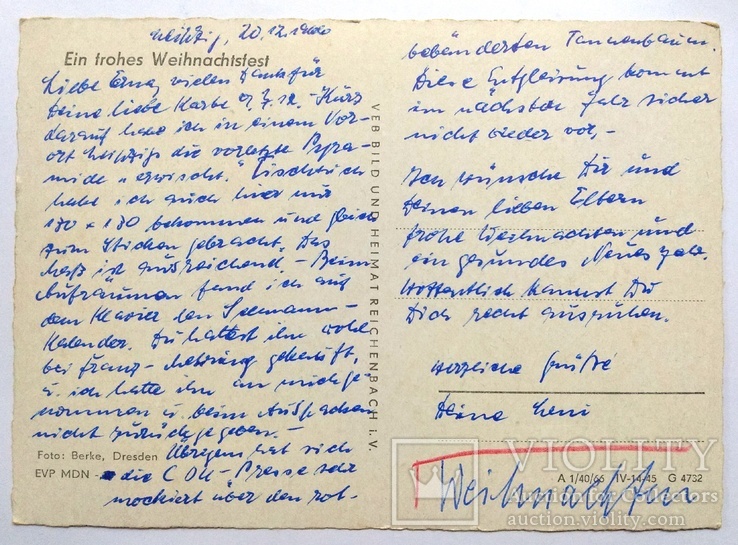 Leipzig, 20.12.1966
Ein frohes Weihnachtsfest
Liebe Erna, vielen Dank für
Deine liebe Karte v. 7.12. - Kurz
darauf habe ich in einem Vor-
ort Leipzigs die vorletzte Pyra-
mide "erwischt." Tischtuch
habe ich auch hier nur
130 x 130 bekommen und gleich
zum Sticken gebracht. Das
ist ausreichend. - Beim
Aufräumen fand ich auf
dem Klavier den Seemann-
Kalender. Du hattest ihn wohl
bei Franz - gekauft,
u. ich hatte ihn an mich ge-
nommen u. beim Auspacken
nicht zurückgegeben. -
Übrigens hat sich
die CDU - Presse sehr
mockiert über den rot-
bebänderten Tannenbaum.
Diese Entgleisung kommt
im nächsten Jahr sicher
nicht wieder vor, -
Ich wünsche Dir und
Deinen lieben Eltern
frohe Weihnachten und
ein gesundes Neues Jahr.
Hoffentlich kannst Du
Dich recht ausruhen.
Herzliche Grüße
Deine Leni
VEB BILD UND HEIMAT REICHENBACH i. V.
Foto: Berke, Dresden
EVP MDN -
A 1/40/66 IV-14-45 G 4732
VIOLITY
Auction for Collectors
auction.violity.com